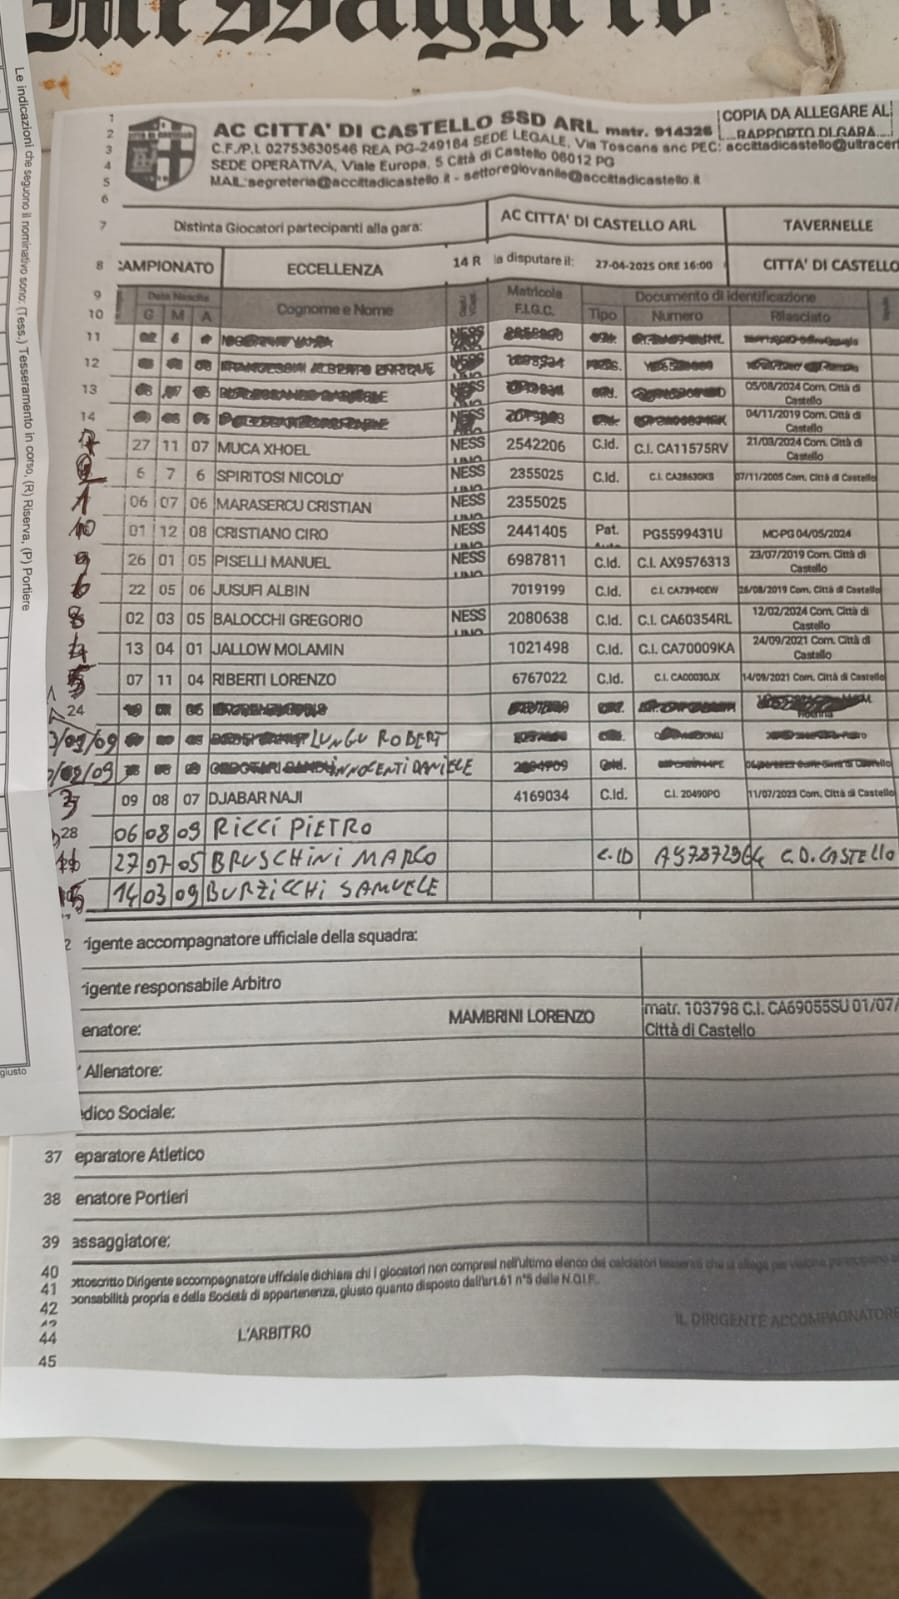 Messaggero
Le indicazioni che seguono il nominativo sono: (Tess.) Tesseramento in corso, (R) Riserva, (P) Portiere
giusto
1
2 AC CITTA' DI CASTELLO SSD ARL matr. 914326 COPIA DA ALLEGARE AL RAPPORTO DI GARA
3 C.F./P.I. 02753630546 REA PG-249184 SEDE LEGALE, Via Toscana snc PEC: accittadicastello@ultracer
4 SEDE OPERATIVA, Viale Europa, 5 Città di Castello 06012 PG
5 MAIL:segreteria@accittadicastello.it - settoregiovanile@accittadicastello.it
6
7 Distinta Giocatori partecipanti alla gara: AC CITTA' DI CASTELLO ARL TAVERNELLE
8 CAMPIONATO ECCELLENZA 14 R la disputare il: 27-04-2025 ORE 16:00 CITTA' DI CASTELLO
9 Data Nascita Cognome e Nome Matricola Documento di identificazione
10 G M A F.I.G.C. Tipo Numero Rilasciato
11 NESS
12 NESS
13 NESS 05/08/2024 Com. Città di Castello
14 NESS 04/11/2019 Com. Città di Castello
27 11 07 MUCA XHOEL NESS 2542206 C.Id. C.I. CA11575RV 21/03/2024 Com. Città di Castello
6 7 6 SPIRITOSI NICOLO' NESS 2355025 C.Id. 07/11/2005 Com. Città di Castello
1 06 07 06 MARASERCU CRISTIAN NESS 2355025
10 01 12 08 CRISTIANO CIRO NESS 2441405 Pat. PG5599431U MC-PG 04/05/2024
9 26 01 05 PISELLI MANUEL NESS 6987811 C.Id. C.I. AX9576313 23/07/2019 Com. Città di Castello
6 22 05 06 JUSUFI ALBIN 7019199 C.Id. 26/08/2019 Com. Città di Castello
8 02 03 05 BALOCCHI GREGORIO NESS 2080638 C.Id. C.I. CA60354RL 12/02/2024 Com. Città di Castello
4 13 04 01 JALLOW MOLAMIN 1021498 C.Id. C.I. CA70009KA 24/09/2021 Com. Città di Castello
5 07 11 04 RIBERTI LORENZO 6767022 C.Id. C.I. CA00030JX 14/09/2021 Com. Città di Castello
24
/09/09 LUNGU ROBERT
/02/09 INNOCENTI DANIELE
3 09 08 07 DJABAR NAJI 4169034 C.Id. C.I. 20490PO 11/07/2023 Com. Città di Castello
28 06 08 09 RICCI PIETRO
11 27 07 05 BRUSCHINI MARCO C.ID AS7872964 C.D.CASTELLO
14 03 09 BURZICCHI SAMUELE
2 rigente accompagnatore ufficiale della squadra:
rigente responsabile Arbitro
enatore: MAMBRINI LORENZO matr. 103798 C.I. CA69055SU 01/07/ Città di Castello
Allenatore:
dico Sociale:
37 eparatore Atletico
38 enatore Portieri
39 assaggiatore:
40 ottoscritto Dirigente accompagnatore ufficiale dichiara chi i giocatori non compresi nell'ultimo elenco dei calciatori
41 ponsabilità propria e della Società di appartenenza, giusto quanto disposto dall'art.61 n°5 delle N.O.I.F..
42
44 L'ARBITRO IL DIRIGENTE ACCOMPAGNATORE
45